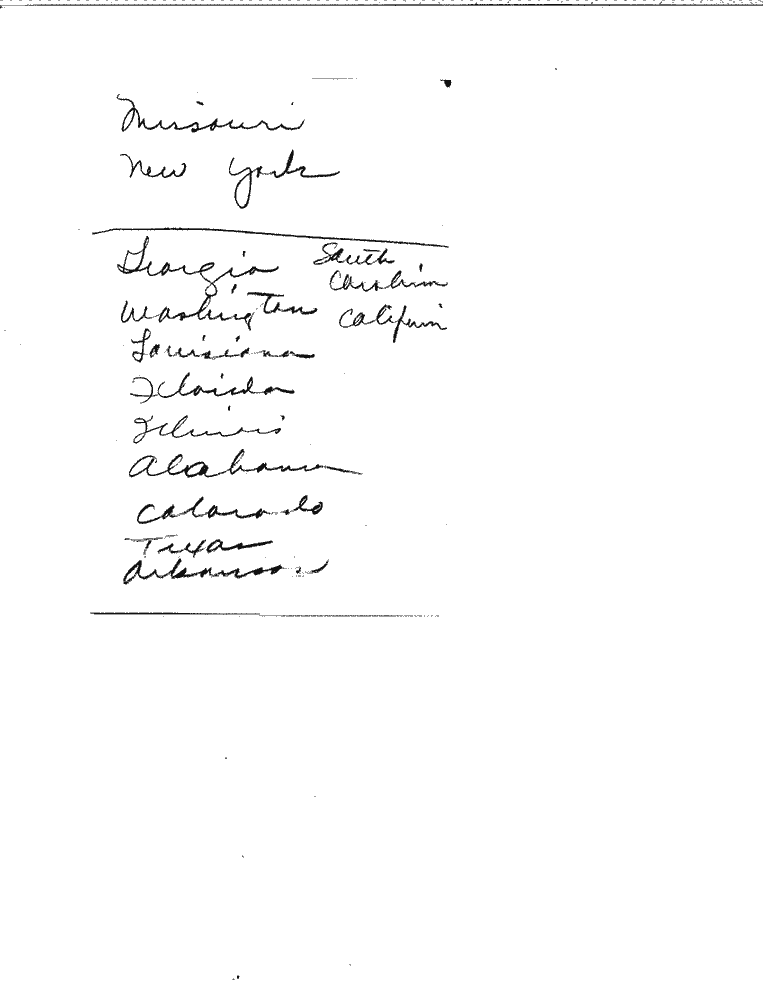 Missouri
New York
Georgia South Carolina
Washington California
Louisiana
Florida
Illinois
Alabama
Colorado
Texas
Arkansas